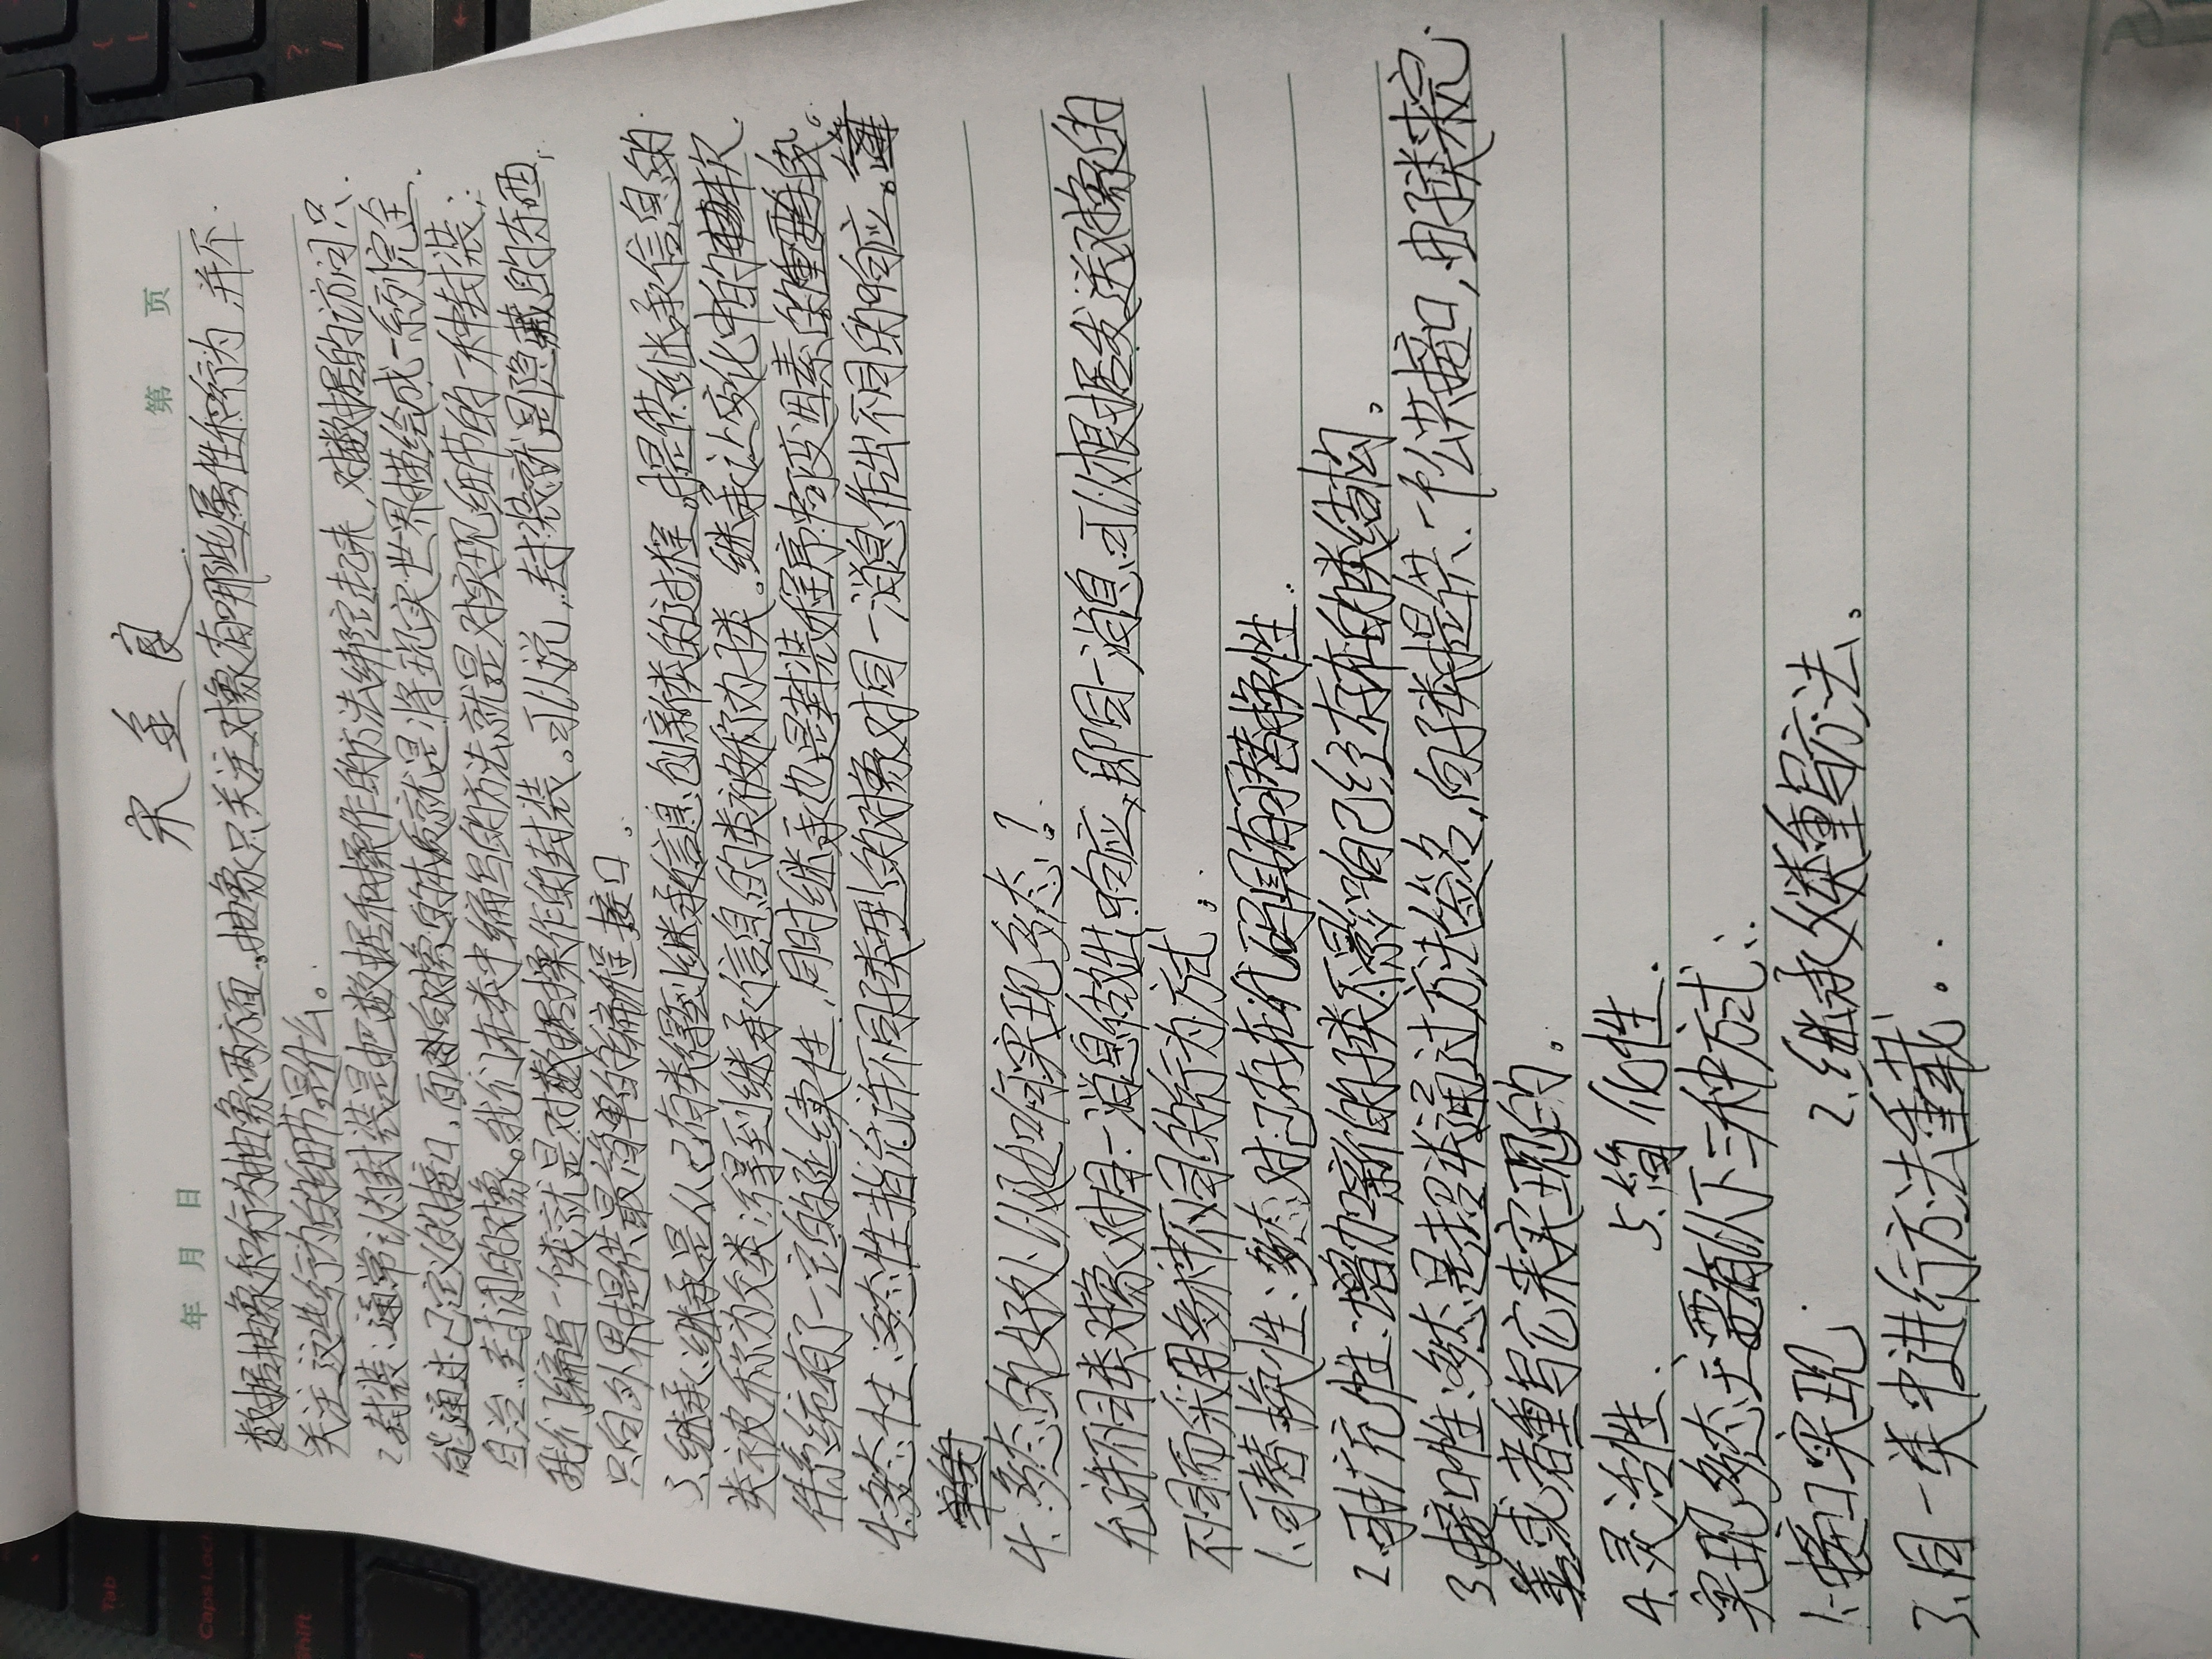 年 月 日 第 页
宋
数据抽象和行为抽象两方面。抽象只关注对象有哪些属性和行为,并不
关注这些行为的细节是什么。
2.封装:通常认为封装是把数据和操作的方法绑定起来,对数据的访问只
能通过已定义的接口,面对向对象的本质就是将现实世界描绘成一系列完全
自治.封闭的对象。我们在类中编写的方法就是对实现细节的一种封装;
我们编写一个类就是对数据操作的封装。可以说,封装就是隐藏的东西,
只向外界提供最简单的编程接口。
3.继承:继承是从已有类得到继承信息创新类的过程。提供继承信息的
类被称为父类;得到继承信息的类被称为子类。继承让变化中的软
件系统有了一定的延续性,同时继承也是封装程序中可变因素的重要手段。
4.多态性:多态性指允许不同子类型的对象对同一消息作出不同的响应。
4、多态的好处以及如何实现多态?
允许不同类对象对同一消息做出响应,即同一消息可以根据发送对象的
不同而采用多种不同的行为方式。
1.可替换性:多态对已存在代码具有可替换性.
2.可扩充性:增加新的子类不影响已经存在的类结构。
3.接口性:多态是超类通过方法签名,向子类提供一个公共接口,由子类来完
善或者重写它来实现的。
4.灵活性. 5.简化性.
实现多态主要有以下三种方式:
1.接口实现. 2.继承父类重写方法。
3.同一类中进行方法重载.